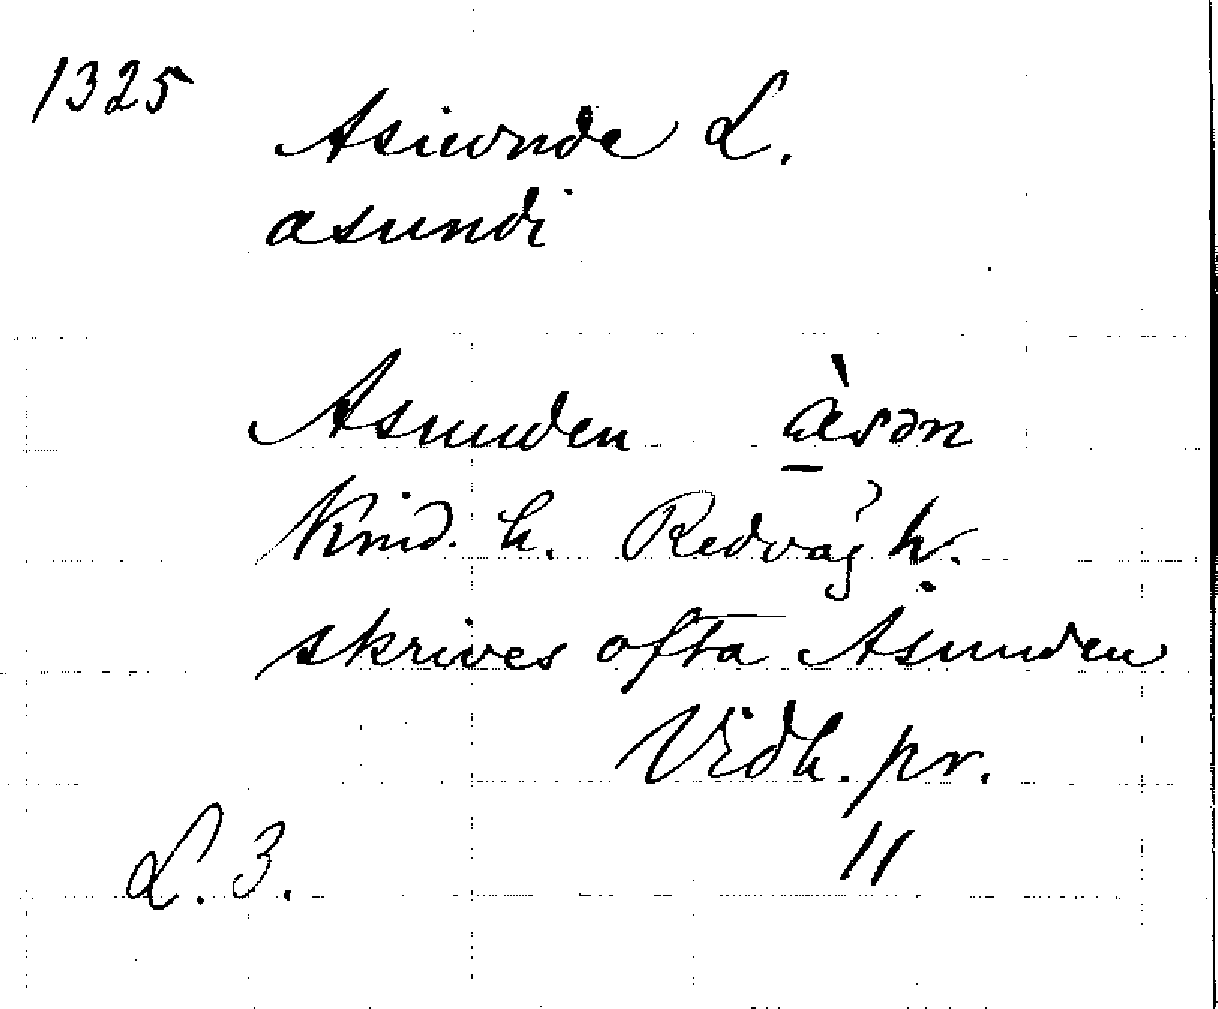 1325
Asiwnde L.
asundi
Asunden àsən
Kind. h. Redväg h.
skrives ofta Åsunden
Vidh. pr.
L. 3. 11